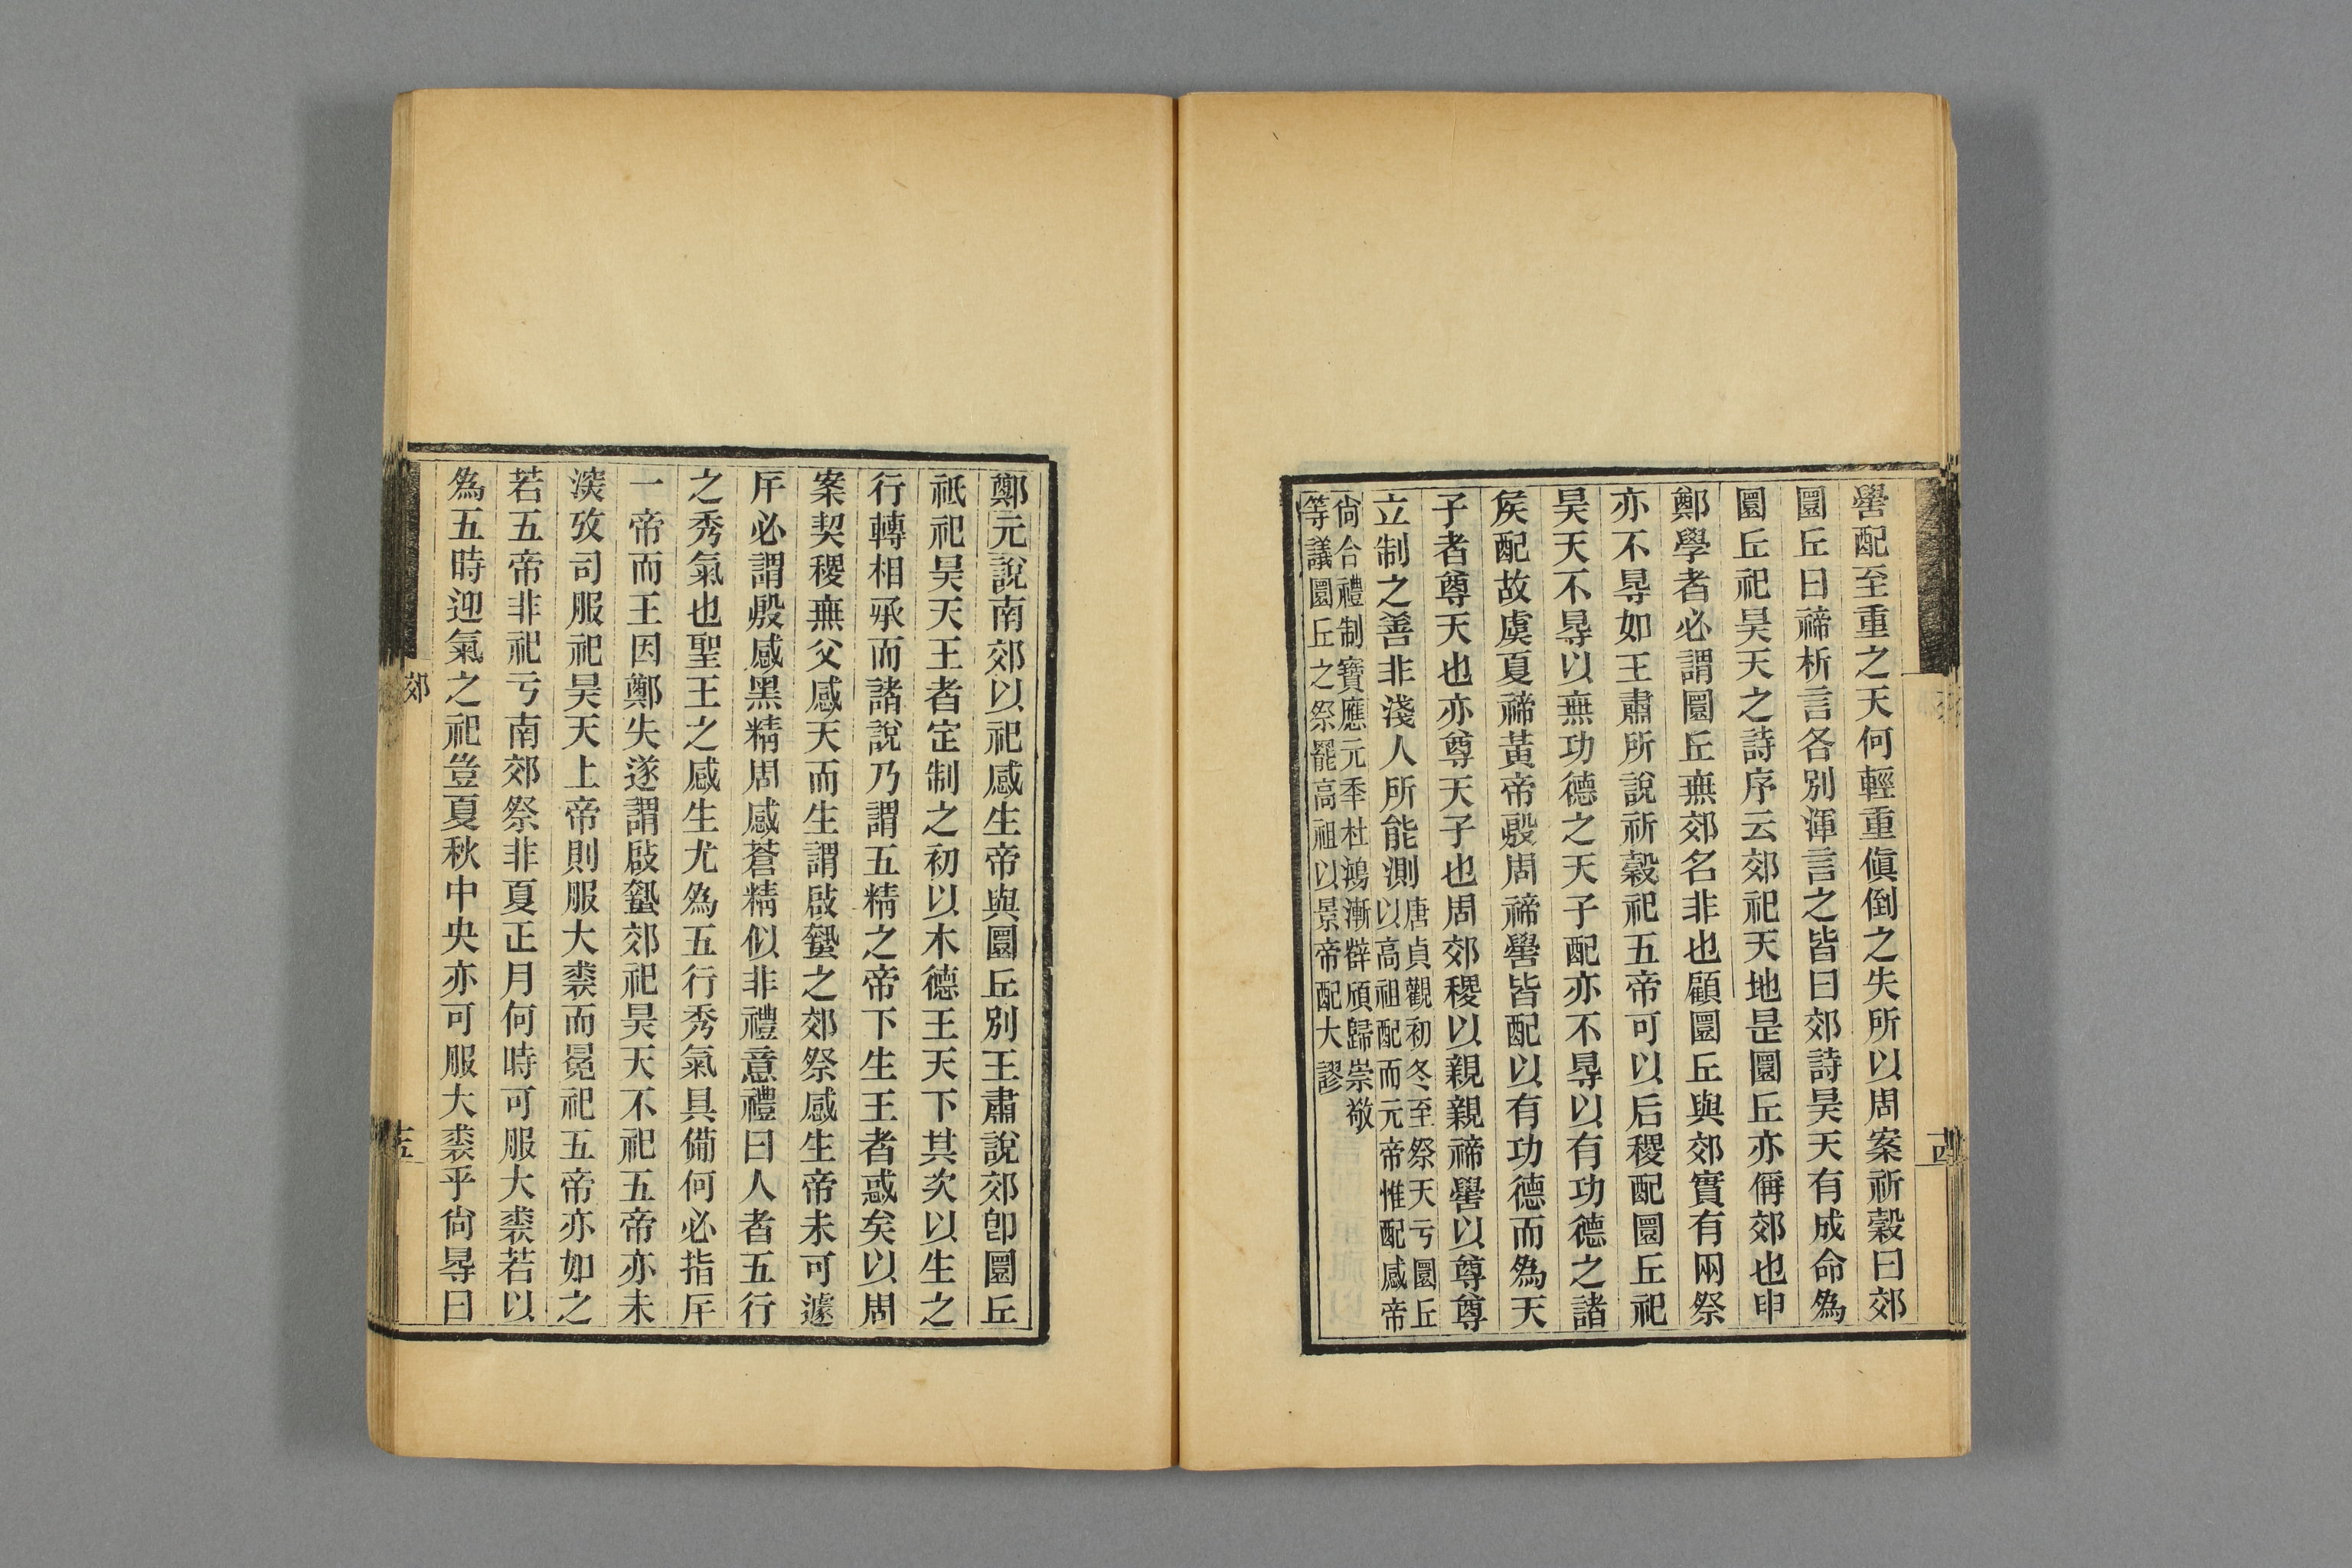 嚳配至重之天何輕重傎倒之失所以周案祈穀曰郊
圜丘曰禘析言各別渾言之皆曰郊詩昊天有成命為
圜丘祀昊天之詩序云郊祀天地是圜丘亦偁郊也申
鄭學者必謂圜丘無郊名非也顧圜丘與郊實有兩祭
亦不㝵如王肅所說祈穀祀五帝可以后稷配圜丘祀
昊天不㝵以無功德之天子配亦不㝵以有功德之諸
矦配故虞夏禘黃帝殷周禘嚳皆配以有功德而為天
子者尊天也亦尊天子也周郊稷以親親禘嚳以尊尊
立制之善非淺人所能測
唐貞觀初冬至祭天亏圜丘
以高祖配而元帝惟配感帝
尙合禮制寶應元秊杜鴻漸辟頎歸崇敬
等議圜丘之祭罷高祖以景帝配大謬
十四
鄭元說南郊以祀感生帝與圜丘別王肅說郊卽圜丘
祇祀昊天王者定制之初以木德王天下其次以生之
行轉相承而諸說乃謂五精之帝下生王者惑矣以周
案契稷無父感天而生謂啟蟄之郊祭感生帝未可遽
斥必謂殷感黑精周感蒼精似非禮意禮曰人者五行
之秀氣也聖王之感生尤為五行秀氣具備何必指斥
一帝而王因鄭失遂謂啟蟄郊祀昊天不祀五帝亦未
深攷司服祀昊天上帝則服大裘而冕祀五帝亦如之
若五帝非祀亏南郊祭非夏正月何時可服大裘若以
為五時迎氣之祀豈夏秋中央亦可服大裘乎尙㝵曰
郊
十五